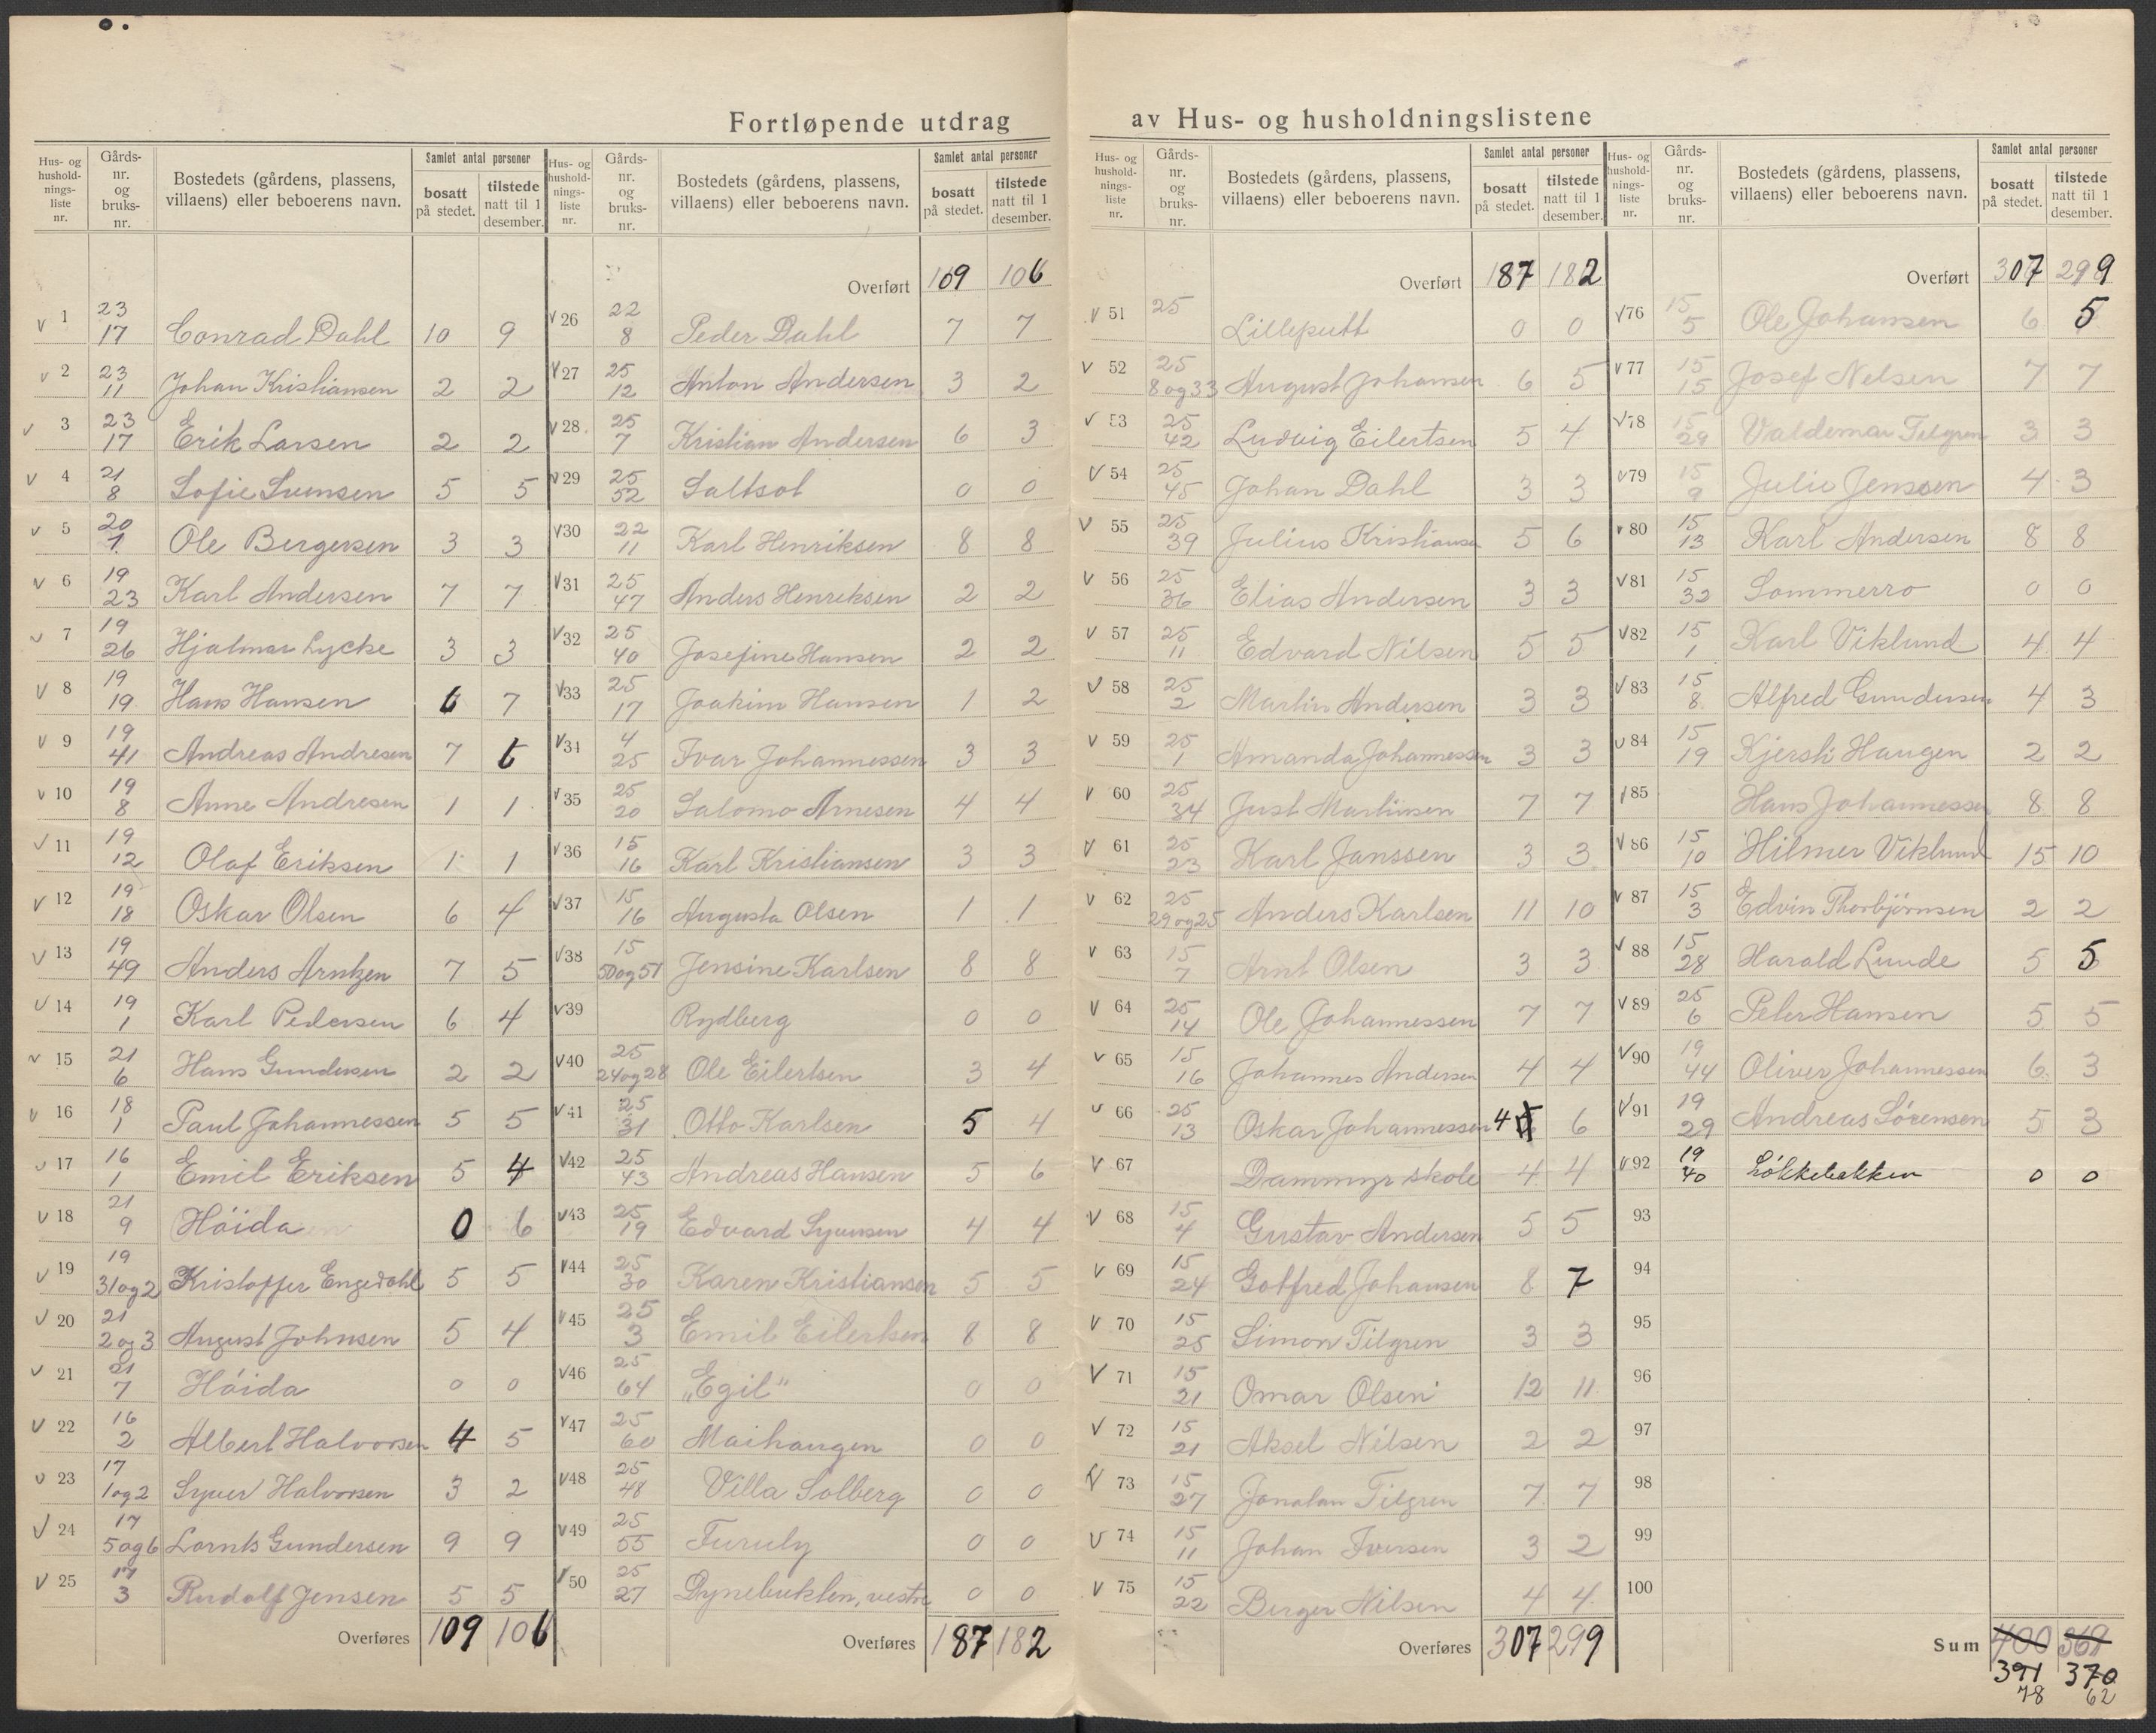 Fortløpende utdrag av Hus- og husholdningslistene
Hus- og husholdnings-liste nr. Gårds-nr. og bruks-nr. Bostedets (gårdens, plassens, villaens) eller beboerens navn. Samlet antal personer bosatt på stedet. tilstede natt til 1 desember.
v 1 23 17 Conrad Dahl 10 9
v 2 23 11 Johan Kristiansen 2 2
v 3 23 17 Erik Larsen 2 2
v 4 21 8 Sofie Svensen 5 5
v 5 20 1 Ole Bergersen 3 3
v 6 19 23 Karl Andersen 7 7
v 7 19 26 Hjalmar Lycke 3 3
v 8 19 19 Hans Hansen 6 7
v 9 19 41 Andreas Andresen 7 6
v 10 19 8 Anne Andresen 1 1
v 11 19 12 Olaf Eriksen 1 1
v 12 19 18 Oskar Olsen 6 4
v 13 19 49 Anders Arntzen 7 5
v 14 19 1 Karl Pedersen 6 4
v 15 21 6 Hans Gundersen 2 2
v 16 18 1 Paul Johannessen 5 5
v 17 16 1 Emil Eriksen 5 4
v 18 21 9 Höida 0 6
v 19 19 31og2 Kristoffer Engedahl 5 5
v 20 21 2 og 3 August Johnsen 5 4
v 21 21 7 Höida 0 0
v 22 16 2 Albert Halvorsen 4 5
v 23 17 1og2 Syver Halvorsen 3 2
v 24 17 5og6 Lornts Gundersen 9 9
v 25 17 3 Rudolf Jensen 5 5
Overføres 109 106
Hus- og husholdnings-liste nr. Gårds-nr. og bruks-nr. Bostedets (gårdens, plassens, villaens) eller beboerens navn. Samlet antal personer bosatt på stedet. tilstede natt til 1 desember.
Overført 109 106
v 26 22 8 Peder Dahl 7 7
v 27 25 12 Anton Andersen 3 2
v 28 25 7 Kristian Andersen 6 3
v 29 25 52 Saltsol 0 0
v 30 22 11 Karl Henriksen 8 8
v 31 25 47 Anders Henriksen 2 2
v 32 25 40 Josefine Hansen 2 2
v 33 25 17 Joakim Hansen 1 2
v 34 4 25 Ivar Johannessen 3 3
v 35 25 20 Salomo Arnesen 4 4
v 36 15 16 Karl Kristiansen 3 3
v 37 15 16 Augusta Olsen 1 1
v 38 15 50og51 Jensine Karlsen 8 8
v 39 Rydberg 0 0
v 40 25 24og28 Ole Eilertsen 3 4
v 41 25 31 Otto Karlsen 5 4
v 42 25 43 Andreas Hansen 5 6
v 43 25 19 Edvard Syversen 4 4
v 44 25 30 Karen Kristiansen 5 5
v 45 25 3 Emil Eilertsen 8 8
v 46 25 64 „Egil" 0 0
v 47 25 60 Maihaugen 0 0
v 48 25 48 Villa Solberg 0 0
v 49 25 55 Furuly 0 0
v 50 25 27 Dynebukten, vestre 0 0
Overføres 187 182
Hus- og husholdnings-liste nr. Gårds-nr. og bruks-nr. Bostedets (gårdens, plassens, villaens) eller beboerens navn. Samlet antal personer bosatt på stedet. tilstede natt til 1 desember.
Overført 187 182
v 51 25 Lilleputt 0 0
v 52 25 8og33 August Johansen 6 5
v 53 25 42 Ludvig Eilertsen 5 4
v 54 25 45 Johan Dahl 3 3
v 55 25 39 Julius Kristiansen 5 6
v 56 25 36 Elias Andersen 3 3
v 57 25 11 Edvard Nilsen 5 5
v 58 25 2 Martin Andersen 3 3
v 59 25 1 Amanda Johannessen 3 3
v 60 25 34 Just Martinsen 7 7
v 61 25 23 Karl Janssen 3 3
v 62 25 29og25 Anders Karlsen 11 10
v 63 15 7 Arnt Olsen 3 3
v 64 25 14 Ole Johannessen 7 7
v 65 15 16 Johannes Andersen 4 4
v 66 25 13 Oskar Johannessen 4 6
v 67 Dammyr skole 4 4
v 68 15 4 Gustav Andersen 5 5
v 69 15 24 Gotfred Johansen 8 7
v 70 15 25 Simon Tilgren 3 3
v 71 15 21 Omar Olsen 12 11
v 72 15 21 Aksel Nilsen 2 2
v 73 15 27 Jonatan Tilgren 7 7
v 74 15 11 Johan Iversen 3 2
v 75 15 22 Berger Nilsen 4 4
Overføres 307 299
Hus- og husholdnings-liste nr. Gårds-nr. og bruks-nr. Bostedets (gårdens, plassens, villaens) eller beboerens navn. Samlet antal personer bosatt på stedet. tilstede natt til 1 desember.
Overført 307 299
v 76 15 5 Ole Johansen 6 5
v 77 15 15 Josef Nelsen 7 7
v 78 15 29 Valdemar Tilgren 3 3
v 79 15 9 Julie Jenssen 4 3
v 80 15 13 Karl Andersen 8 8
v 81 15 32 Sommerro 0 0
v 82 15 1 Karl Viklund 4 4
v 83 15 8 Alfred Gundersen 4 3
v 84 15 19 Kjersti Haugen 2 2
85 Hans Johannessen 8 8
v 86 15 10 Hilmer Viklund 15 10
v 87 15 3 Edvin Thorbjörnsen 2 2
v 88 15 28 Harald Lunde 5 5
v 89 25 6 Peter Hansen 5 5
v 90 19 44 Oliver Johannessen 6 3
v 91 19 29 Andreas Sörensen 5 3
v 92 19 40 Løkkebakken 0 0
93
94
95
96
97
98
99
100
Sum 400 369
391 370
78 62